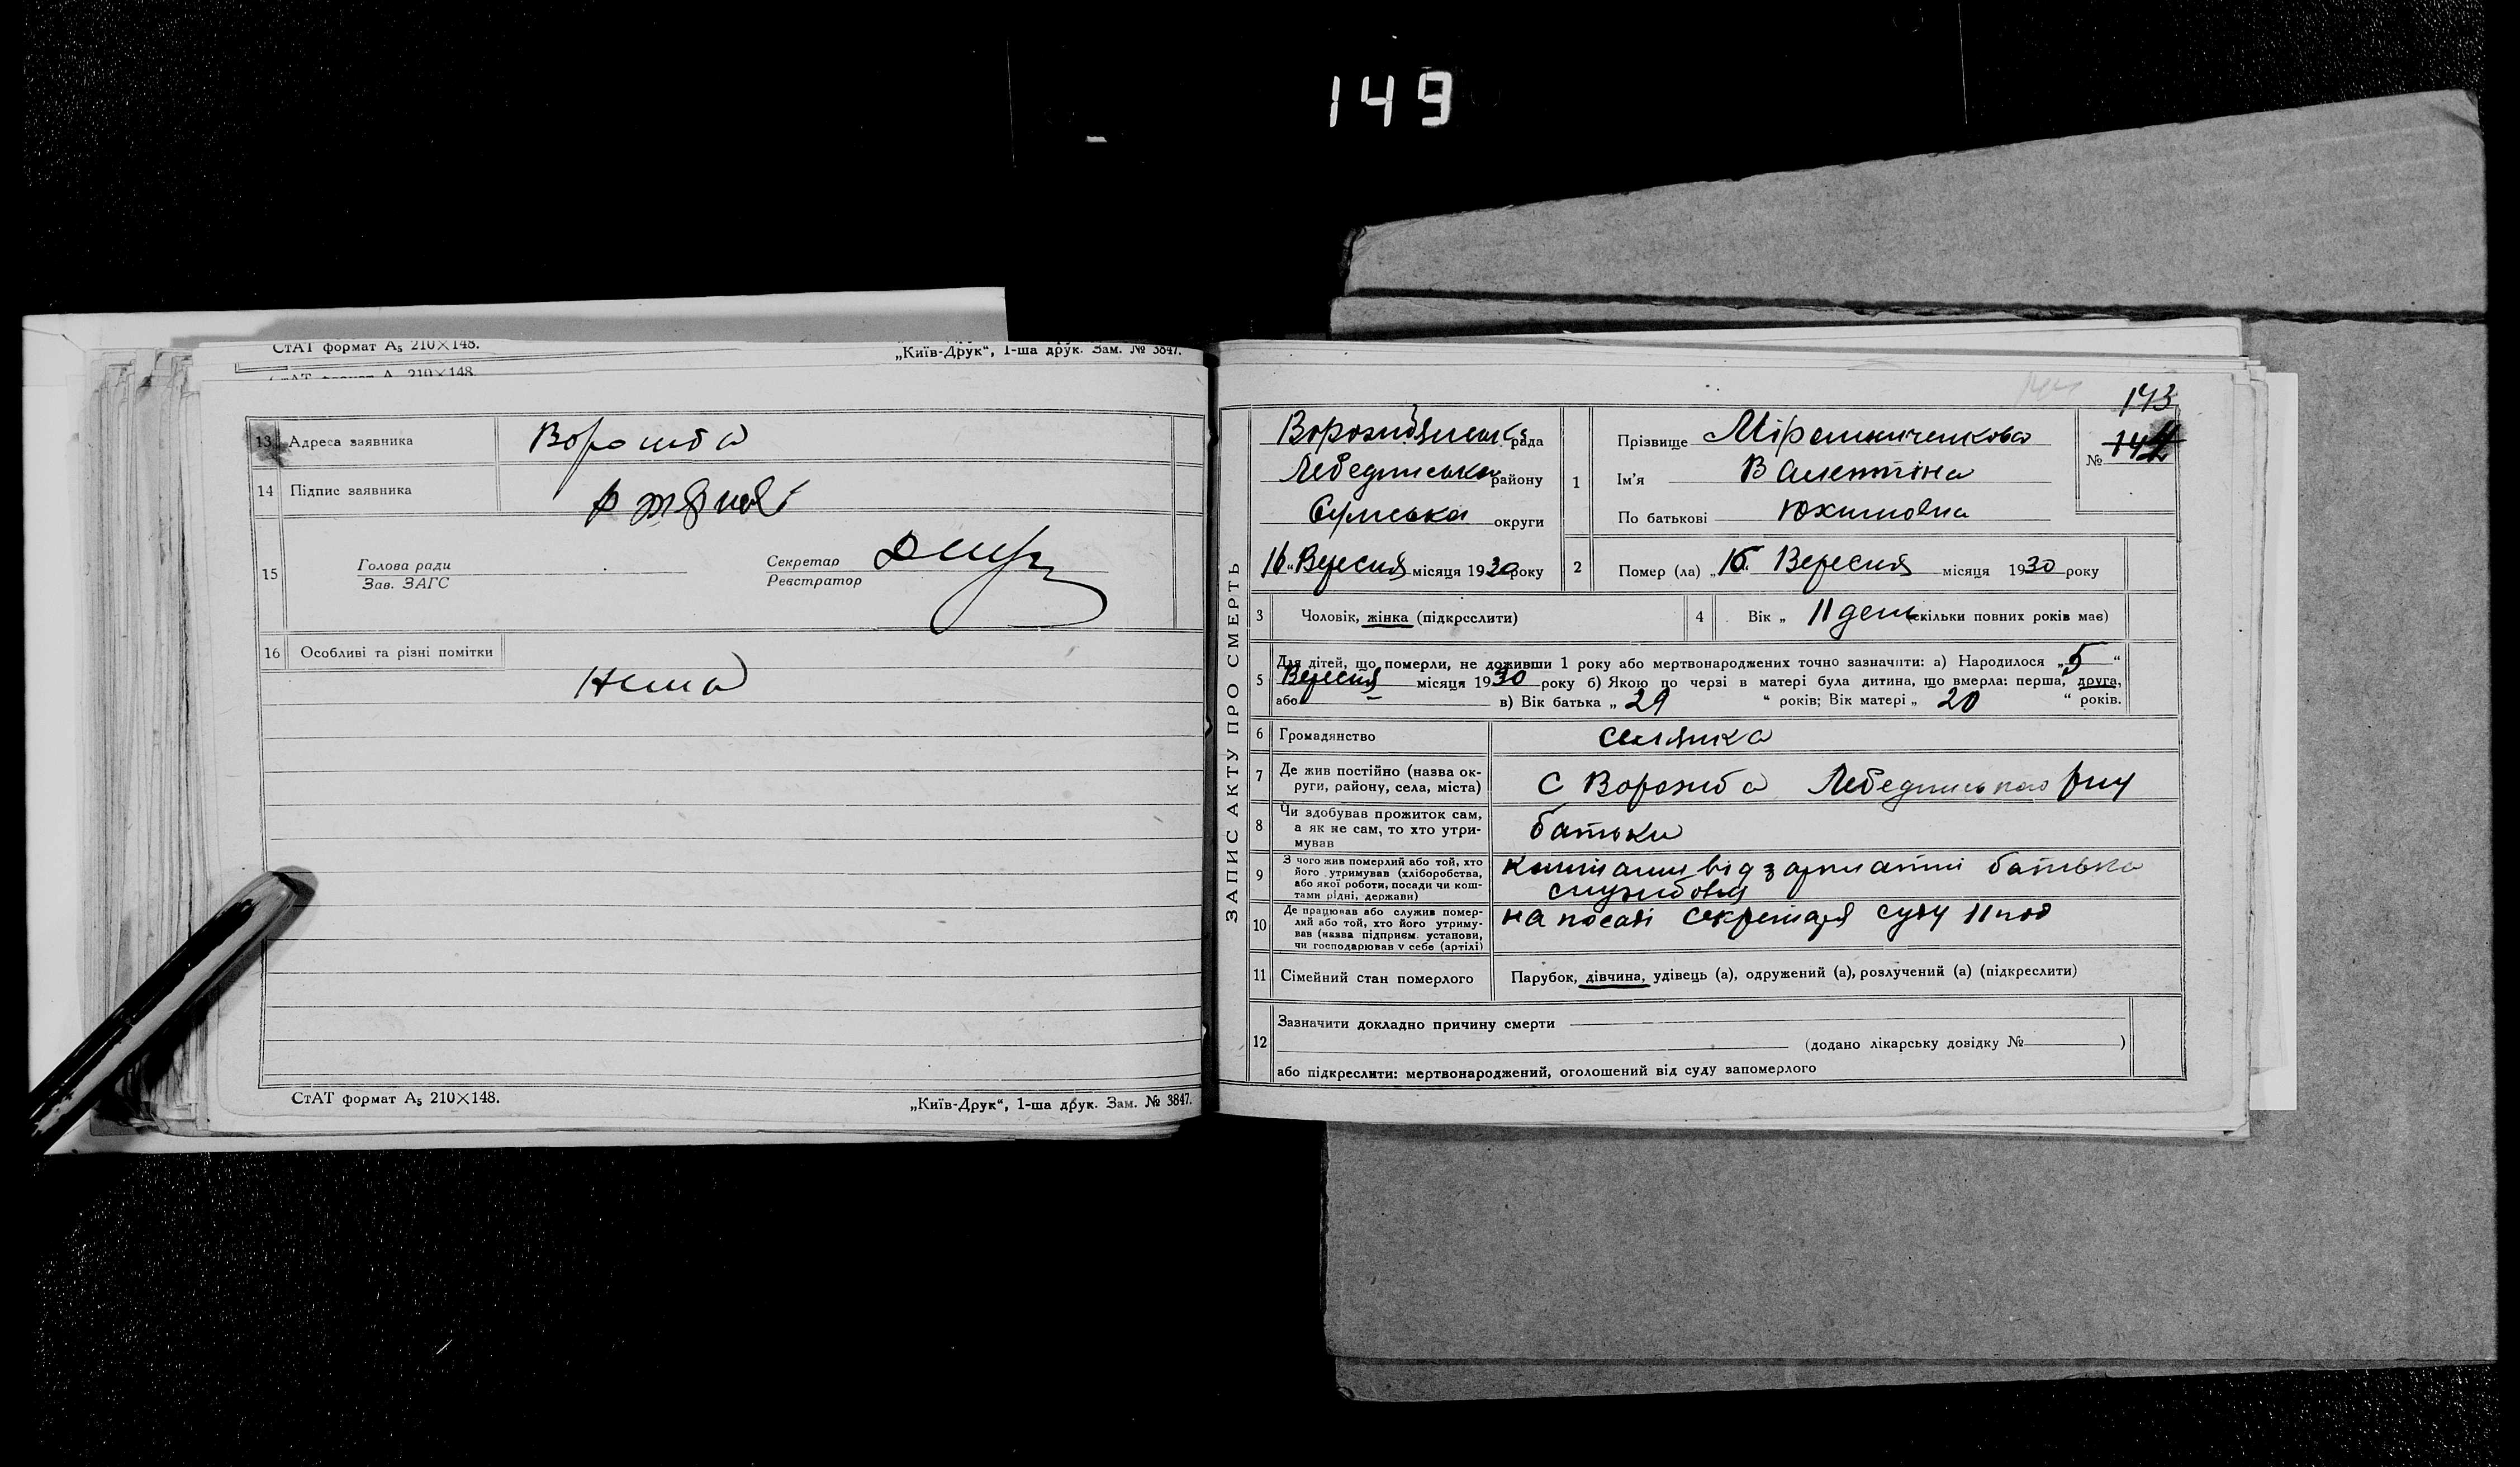 149
СтАТ формат А₅ 210×148.
„Київ-Друк“, 1-ша друк. Зам. № 3847.
СтАТ формат А 210×148
13 Адреса заявника Ворожба
14 Підпис заявника
15 Голова ради
Зав. ЗАГС
Секретар
Реєстратор
16 Особливі та різні помітки
Нима
СтАТ формат А₅ 210×148.
„Київ-Друк“, 1-ша друк. Зам. № 3847.
ЗАПИС АКТУ ПРО СМЕРТЬ
144
143
№ 144
Ворожбянська рада
Лебединська району
Сумська округи
16 „Вересня місяця 1930 року
1 Прізвище Мірошниченкова
Ім'я Валентіна
По батькові Юхимовна
2 Помер (ла) „16“ Вересня місяця 1930 року
3 Чоловік, жінка (підкреслити)
4 Вік „ 11 день (скільки повних років має)
5 Для дітей, що померли, не доживши 1 року або мертвонароджених точно зазначити: а) Народилося „5“
Вересня місяця 1930 року б) Якою по черзі в матері була дитина, що вмерла: перша, друга,
або — в) Вік батька „ 29 “ років; Вік матері „ 20 “ років.
6 Громадянство селянка
7 Де жив постійно (назва округи, району, села, міста)
С Ворожба Лебединського рну
8 Чи здобував прожиток сам, а як не сам, то хто утримував
батьки
9 З чого жив померлий або той, хто його утримував (хліборобства, або якої роботи, посади чи коштами рідні, держави)
коштами від зарплатні батька
службовця
10 Де працював або служив померлий або той, хто його утримував (назва підприєм. установи, чи господарював у себе (артілі)
на посаді секретаря суду
11 Сімейний стан померлого Парубок, дівчина, удівець (а), одружений (а), розлучений (а) (підкреслити)
12 Зазначити докладно причину смерти
(додано лікарську довідку № )
або підкреслити: мертвонароджений, оголошений від суду запомерлого